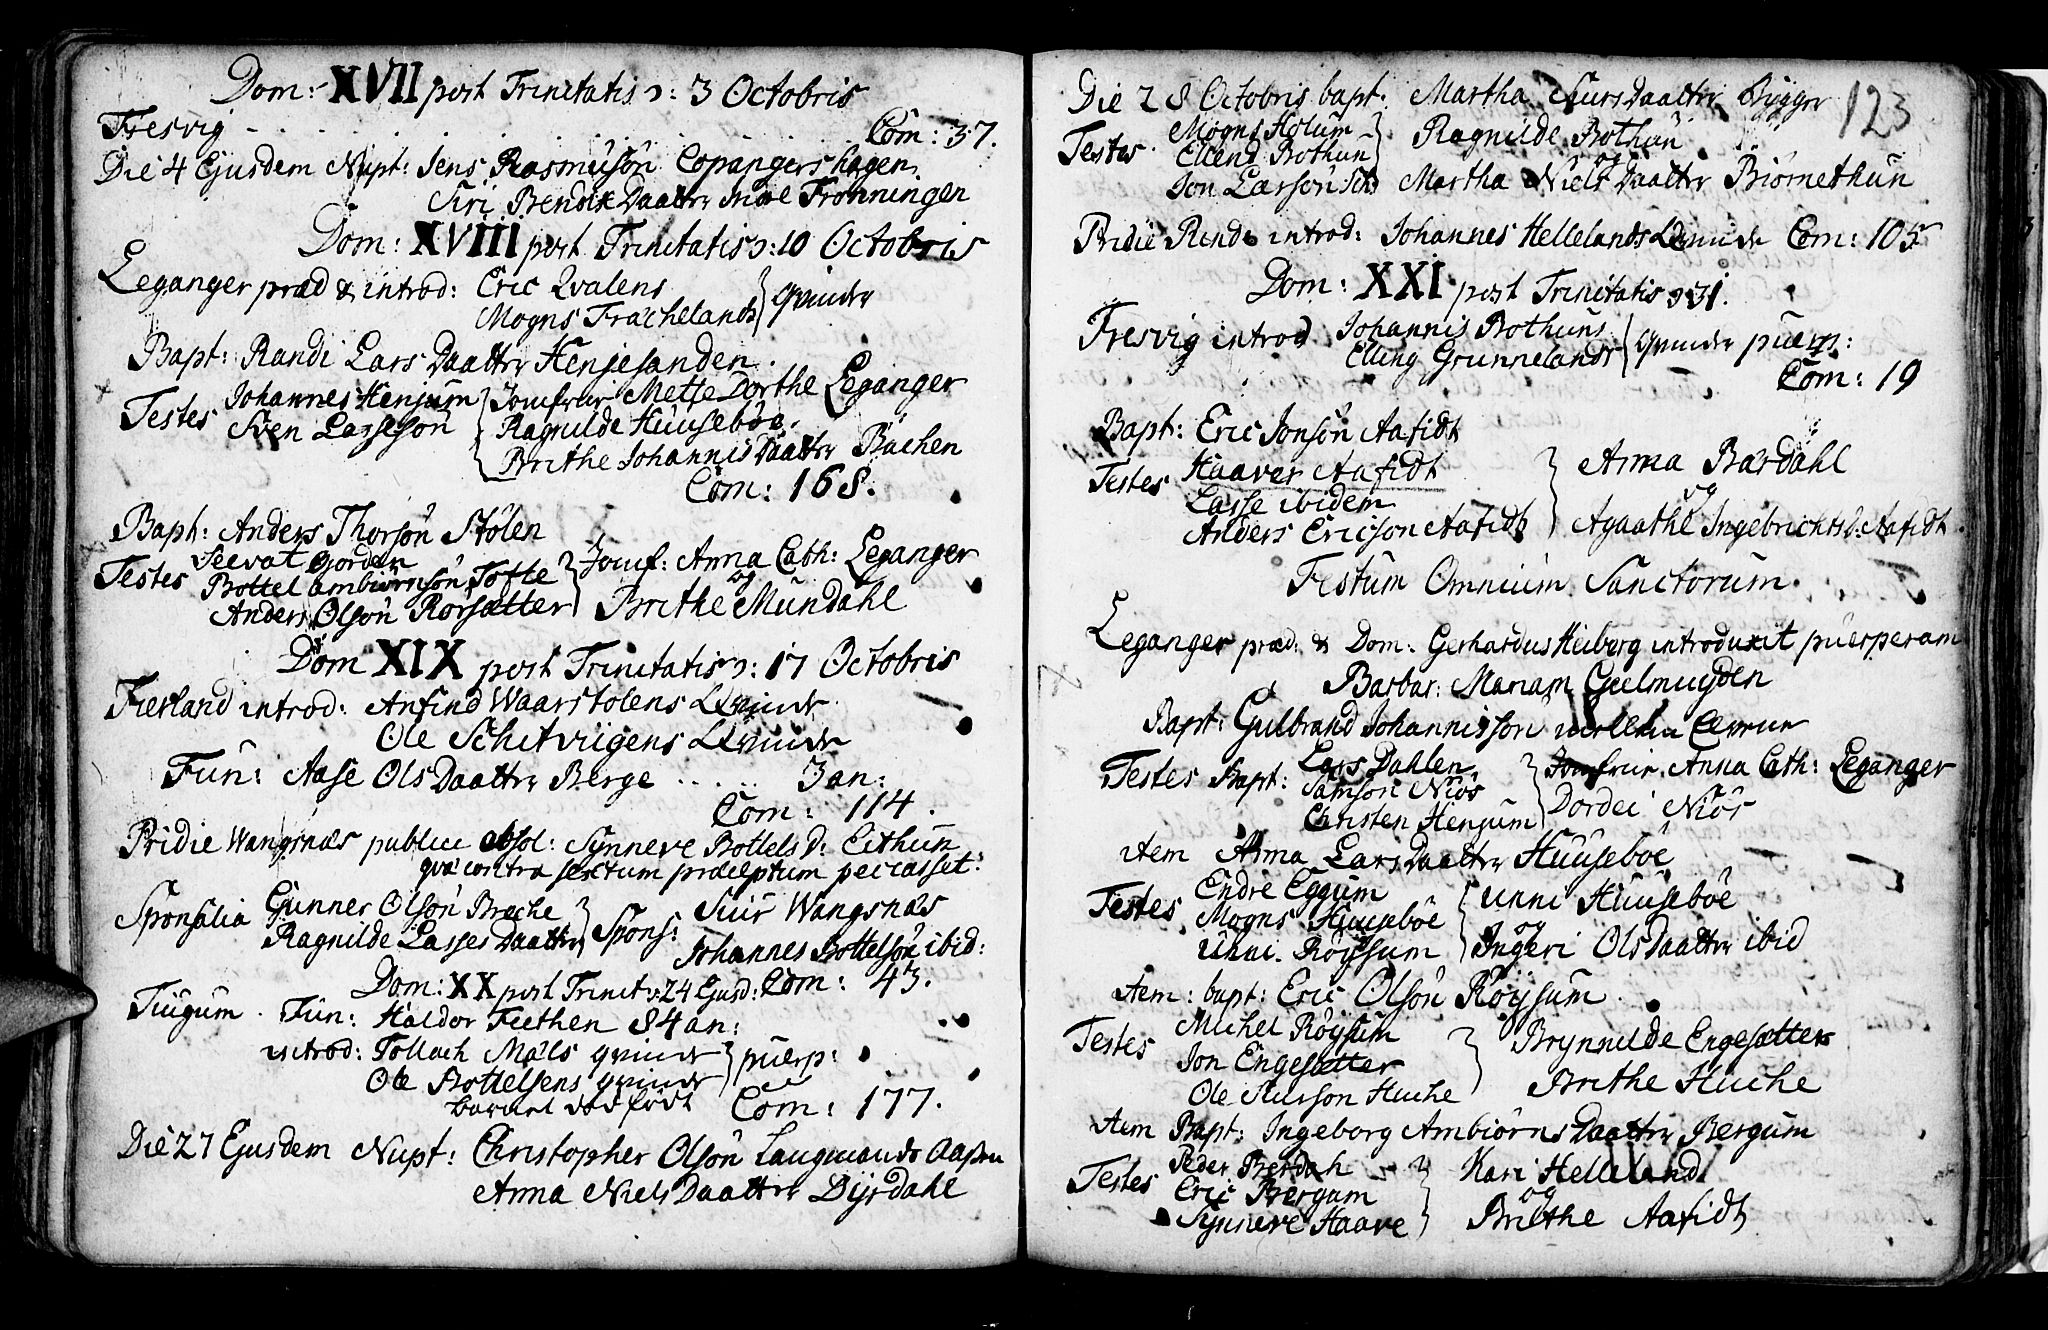 Dom: XVII post Trinitatis ɔ: 3 Octobris
Fresvig - . . . . . . . . Com: 37.
Die 4 Ejusdem Nupt: Jens Rasmusön Copangers hagen.
Siri Bendix Daatter Indre Frønningen
Dom: XVIII post Trinitatis ɔ: 10 Octobris
Leganger præd & introd: Eric Qvalens
Mogns Frachelands } qvinder
Bapt: Randi Lars Daatter Henjesanden.
Testes Johannes Henjum Jomfrue Mette Dorthe Leganger
Sven Lassesön Ragnilde Huusebøe.
Brithe Johannis Daatter Bachen
Com: 168.
Bapt: Anders Thorsön Stölen
Testes Seevat Gorden Jomf: Anna Cath: Leganger
Bottel ambiörnsön Tofte og
Anders Olsön Rorsætter } Brithe Mundahl
Dom XIX post Trinitatis ɔ: 17 Octobris
Fierland introd: Anfind Waarstolens Qvinde
Ole Schetvigens Qvinde
Fun: Aase Ols Daatter Berge . . . . . 3 an:
Com: 114.
Pridie Wangsnæs publice absol: Synneve Bottels D: Eithun
qvæ contra sextum præceptum peccasset.
Sponsalia Gunner Olsön Breche Siur Wangsnæs
Ragnilde Lasses Daatter } Spons: Johannes Bottelsön ibid:
Dom: XX post Trinit ɔ: 24 Ejusd: Com: 43.
Tiugum . Fun: Haldor Feethen 84 an:
introd: Tollach Mæls qvinde
Ole Bottelsens qvinde } puerp:
barnet död födt Com: 177.
Die 27 Ejusdem Nupt: Christopher Olsön
Anna Niels Daatter Dÿrdahl
Die 28 Octobris bapt: Martha Siurs Daatter Bygger 123
Testes Mogns Holum Ragnilde Bothun
Ellend Bothun og
Jon Larsön ibid Martha Niels Daatter Biömethun
Pridie Rinde introd: Johannes Hellelands Qvinde Com: 105
Dom: XXI post Trinitatis ɔ: 31.
Fresvig introd Johannis Bothuns
Elling Grunnelands } qvinder puerp:
Com: 19
Bapt: Eric Jonsön Aafidt
Testes Haaver Aafidt Anna Bardahl
Lasse ibidem og
Anders Ericson Aafidt } Agaathe Ingebrichts d: Aafidt.
Festum Omnium Sanctorum.
Leganger præd: & Dom. Gerhardus Heiberg introduxit puerperam
Barbar: Mariam Geelmuyden
Bapt: Gulbrand Johannisson
Testes Bapt: Lars Dahlen Jomfrue Anna Cath: Leganger
Samson Niös Dordei Niös
Christen Henjum
item Anna Lars Daatter Huusebøe
Testes Endre Eggum Unni Huusebøe
Mogns Huusebøe og
Unni. Röyssum Ingeri Ols Daatter ibid
item: bapt: Eric Olsön Röysum.
Testes Michel Röysum Brynnilde Engesætter
Jon Engesætter
Ole Siursson Huche Brithe Huche
item Bapt: Ingeborg Ambiörns Daatter Bergum
Testes Peder Berdah Kari Helleland
Eric Bergum og
Synneve Haave Brithe Aafidt